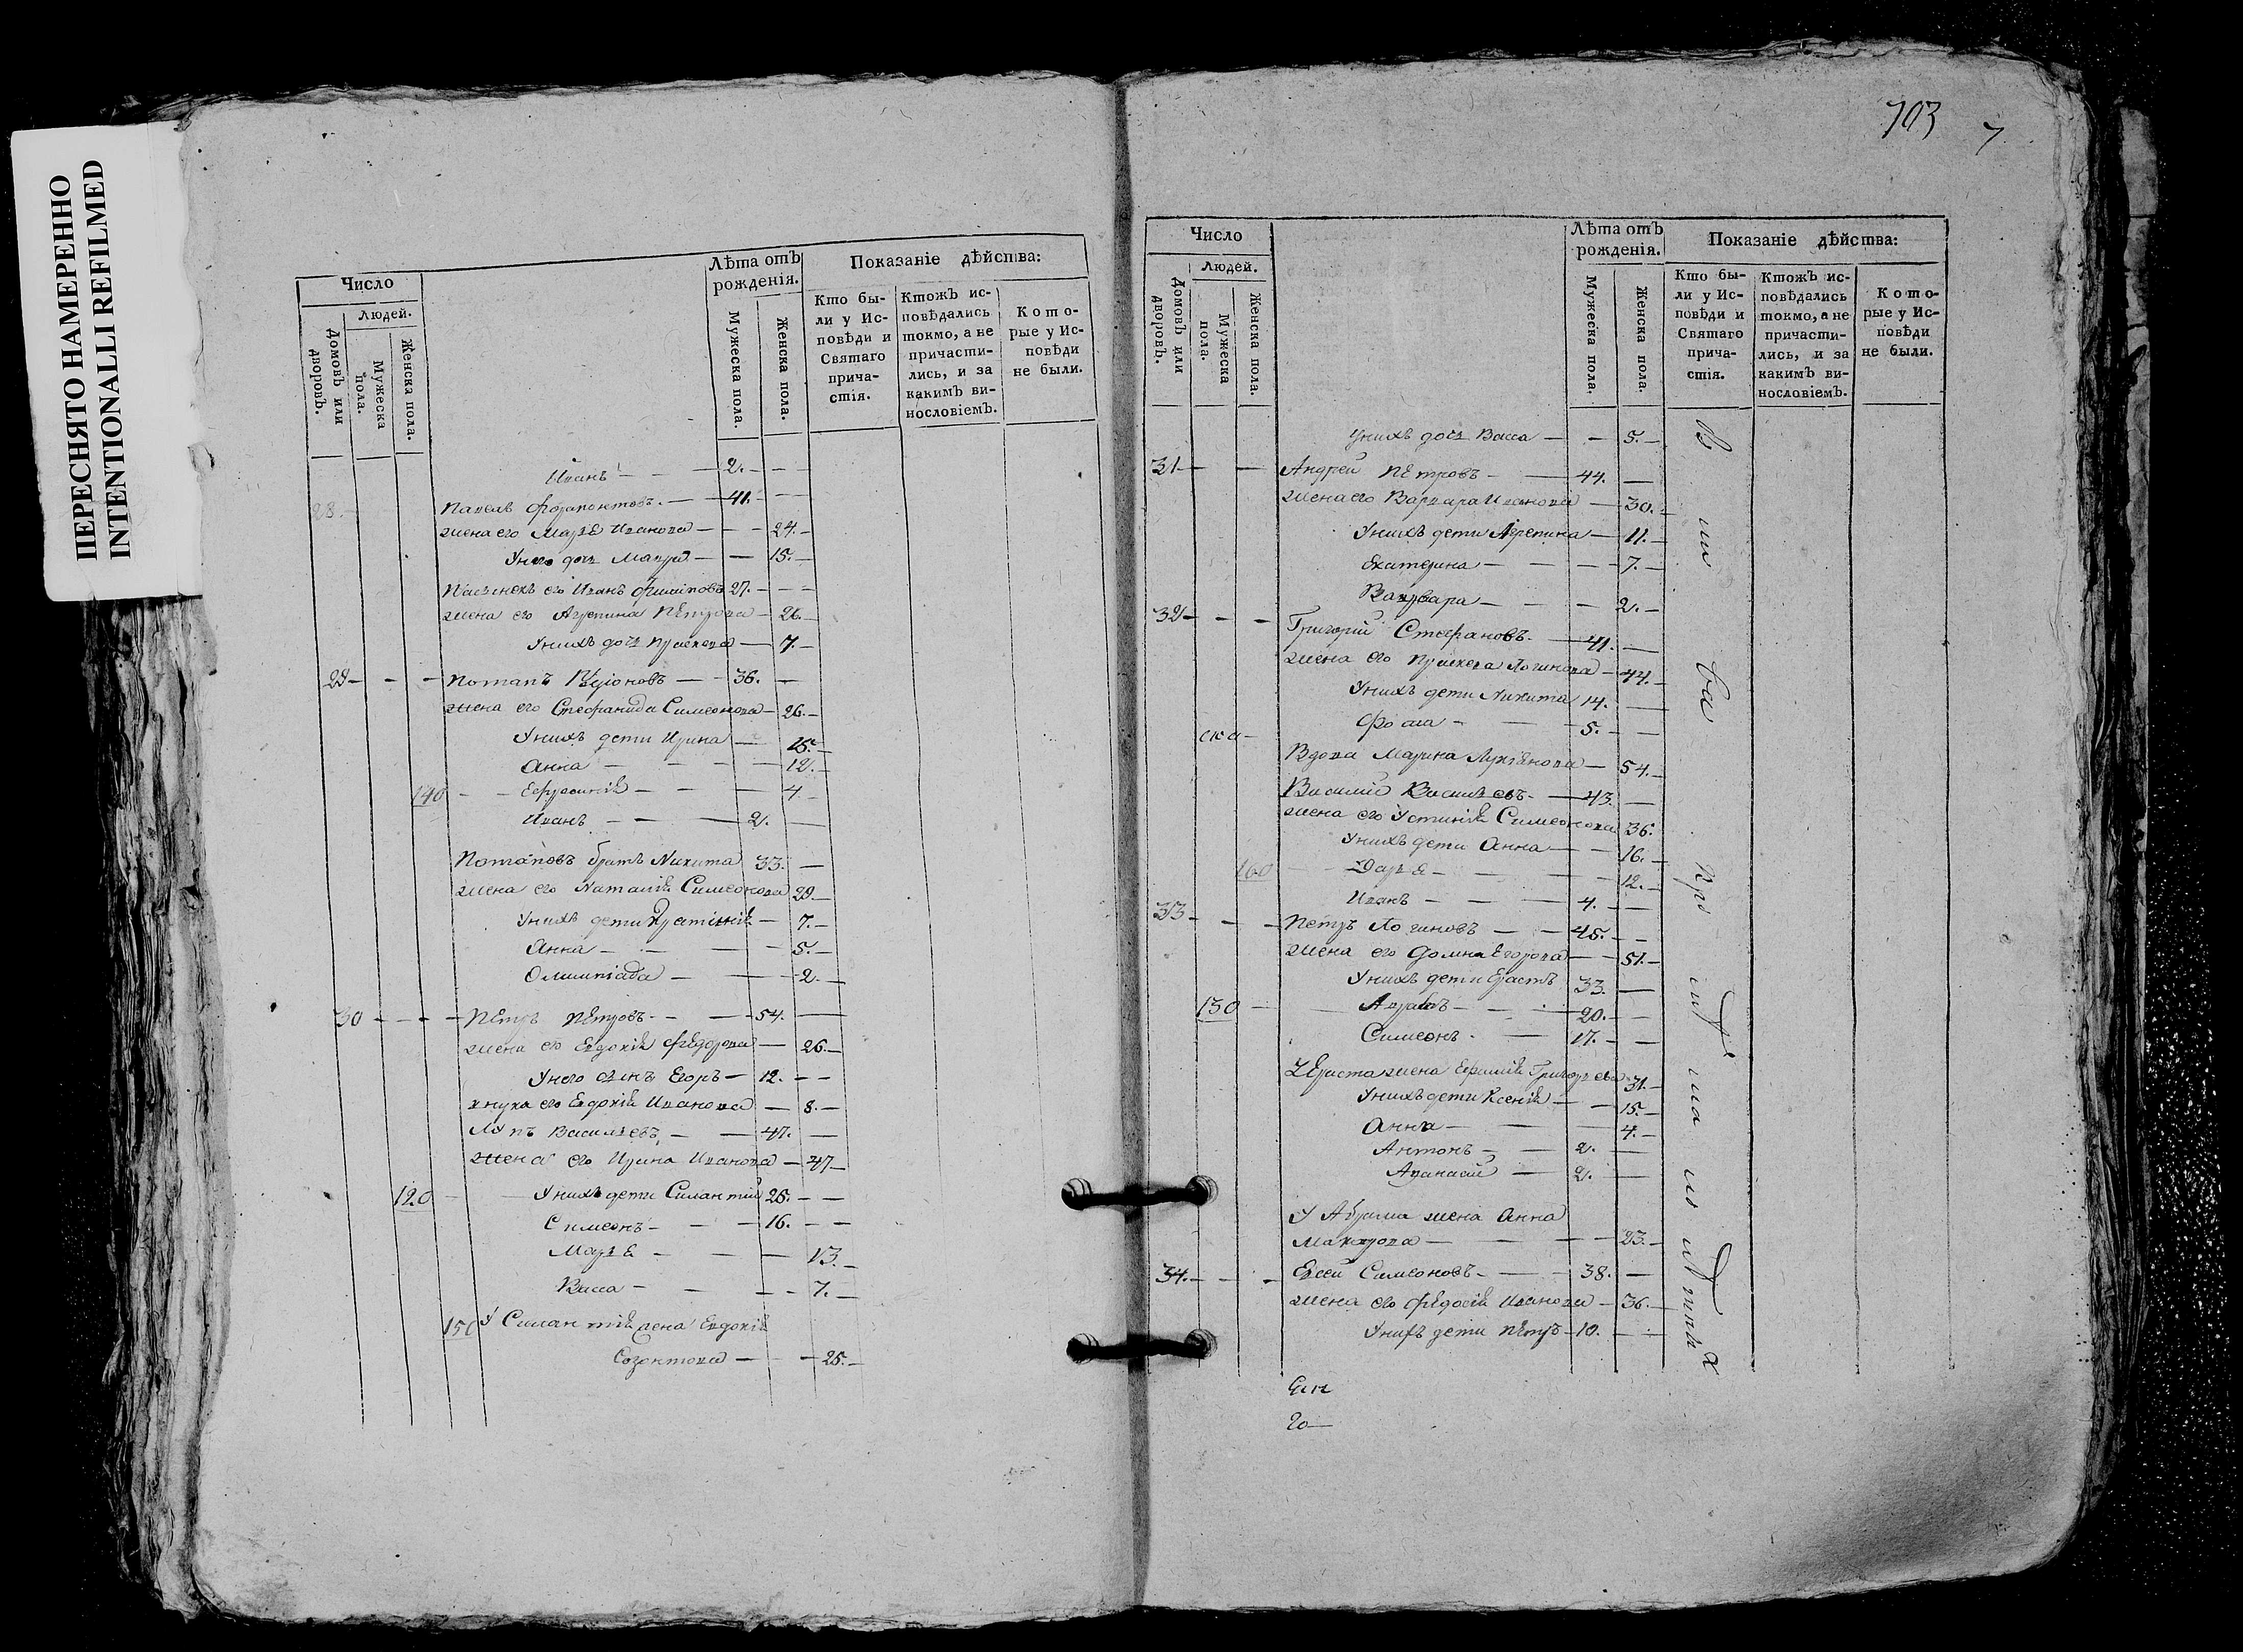 ПЕРЕСНЯТО НАМЕРЕННО
INTENTIONALLI REFILMED
Число
Людей.
Домовъ или дворовъ.
Мужеска пола.
Женска пола.
Лѣта отъ рожденія.
Мужеска пола.
Женска пола.
Показаніе дѣйства:
Кто были у Исповѣди и Святаго причастія.
Ктожъ исповѣдались токмо, а не причастились, и за какимъ винословіемъ.
Которые у Исповѣди не были.
Иванъ — 2.
28. Павелъ Ферапонтовъ. — 41.
жена его Марья Иванова — 24.
У него дочь Мавра — 15.
Пасынокъ его Иванъ Филиповъ 27.
жена его Агрепина Петрова — 26.
У нихъ дочь Праскева — 7.
29 — Потапъ — 36.
жена его Стефанида Симеонова — 26.
У нихъ дети Ирина — 15.
Анна — 12.
140 — Ефросинія — 4.
Иванъ — 2.
Потаповъ братъ Никита 33.
жена его Наталія Симеонова 29
У нихъ дети — 7.
Анна — 5.
Олимпіада — 2.
30 — Петръ Петровъ — 54.
жена его Евдокія Федорова — 26.
У него сынъ Егоръ — 12.
внука его Евдокія Иванова — 8.
Лупъ Васильевъ — 47.
жена его Ирина Иванова — 47
120 — У нихъ дети Силантій 25.
Симеонъ — 16.
Марья — 13.
Васса — 7.
150 У Силантія жена Евдокія
Созонтова — 25.
703 7
Число
Людей.
Домовъ или дворовъ.
Мужеска пола.
Женска пола.
Лѣта отъ рожденія.
Мужеска пола.
Женска пола.
Показаніе дѣйства:
Кто были у Исповѣди и Святаго причастія.
Ктожъ исповѣдались токмо, а не причастились, и за какимъ винословіемъ.
Которые у Исповѣди не были.
У нихъ дочь Васса — 5.
31 — Андрей Петровъ — 44.
жена его Варвара Иванова — 30.
У нихъ дети Агрепина — 11.
Екатерина — 7.
Варвара — 2.
32 — Григорій Стефановъ. — 41.
жена его Праскева Логинова — 44.
У нихъ дети Никита 14.
Фома — 5.
Вдова Марина Лукіянова — 54.
Василій Васильевъ — 43.
жена его Устинія Симеонова 36.
У нихъ дети Анна — 16.
160 — Дарья — 12.
Иванъ — 4.
33 — Петръ Логиновъ — 45.
жена его Домна Егорова — 51.
У нихъ дети Ерастъ 33.
130 — 20.
Симеонъ — 17.
У Ераста жена Ефимія Григорьева 31.
У нихъ дети Ксенія — 15.
Анна — 4.
Антонъ — 2.
Афанасій — 2.
У Абрама жена Анна
Макарова — 23.
34. — Евсей Симеоновъ — 38.
жена его Федосія Иванова — 36.
У нихъ дети Петръ — 10.